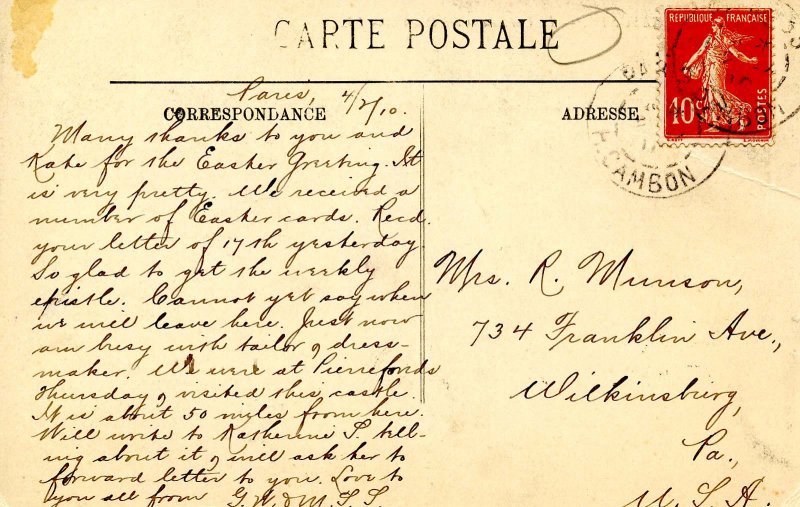 CARTE POSTALE
RÉPUBLIQUE FRANÇAISE
10c
POSTES
R. CAMBON
CORRESPONDANCE
ADRESSE
Paris, 4/2/10.
Many thanks to you and
Kate for the Easter Greeting. It
is very pretty. We received a
number of Easter cards. Recd.
your letter of 17th yesterday.
So glad to get the weekly
epistle. Cannot yet say when
we will leave here. Just now
am busy with tailor & dress-
maker. We were at Pierrefonds
Thursday & visited this castle.
It is about 50 miles from here.
Will write to Katherine S. tell-
ing about it & will ask her to
forward letter to you. Love to
you all from G.W. & M.S.S.
Mrs. R. Munson,
734 Franklin Ave.,
Wilkinsburg,
Pa.,
U.S.A.